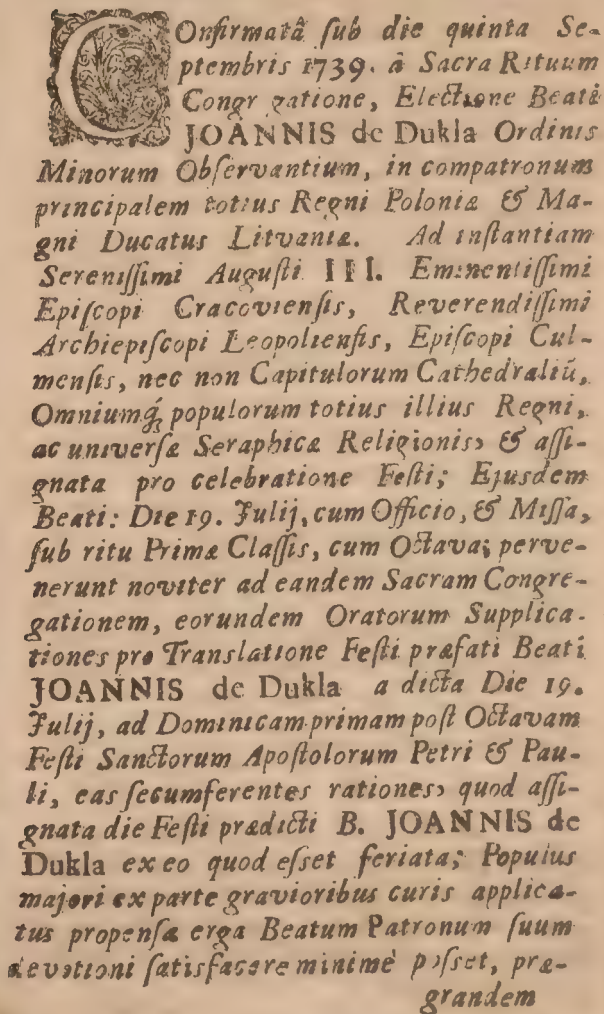 COnfirmatâ ſub die quinta Se-
ptembris 1739. â Sacra Rituum
Congr gatione, Electione Beati
JOANNIS de Dukla Ordinis
Minorum Obſervantium, in compatronum
principalem totius Regni Poloniæ & Ma-
gni Ducatus Litvaniæ. Ad inſtantiam
Sereniſſimi Auguſti III. Eminentiſſimi
Epiſcopi Cracovienſis, Reverendiſſimi
Archiepiſcopi Leopolienſis, Epiſcopi Cul-
menſis, nec non Capitulorum Cathedraliū,
Omniumq́; populorum totius illius Regni,
ac univerſæ Seraphicæ Religionis, & aſſi-
gnata pro celebratione Feſti; Ejusdem
Beati: Die 19. Julij, cum Officio, & Miſſa,
ſub ritu Primæ Claſſis, cum Octava; perve-
nerunt noviter ad eandem Sacram Congre-
gationem, eorundem Oratorum Supplica-
tiones pro Translatione Feſti præfati Beati
JOANNIS de Dukla a dicta Die 19.
Julij, ad Dominicam primam poſt Octavam
Feſti Sanctorum Apoſtolorum Petri & Pau-
li, eas ſecumferentes rationes, quod aſſi-
gnata die Feſti prædicti B. JOANNIS de
Dukla ex eo quod eſset feriata; Populus
majori ex parte gravioribus curis applica-
tus propenſæ erga Beatum Patronum ſuum
devotioni ſatisfacere minimè poſset, præ-
grandem